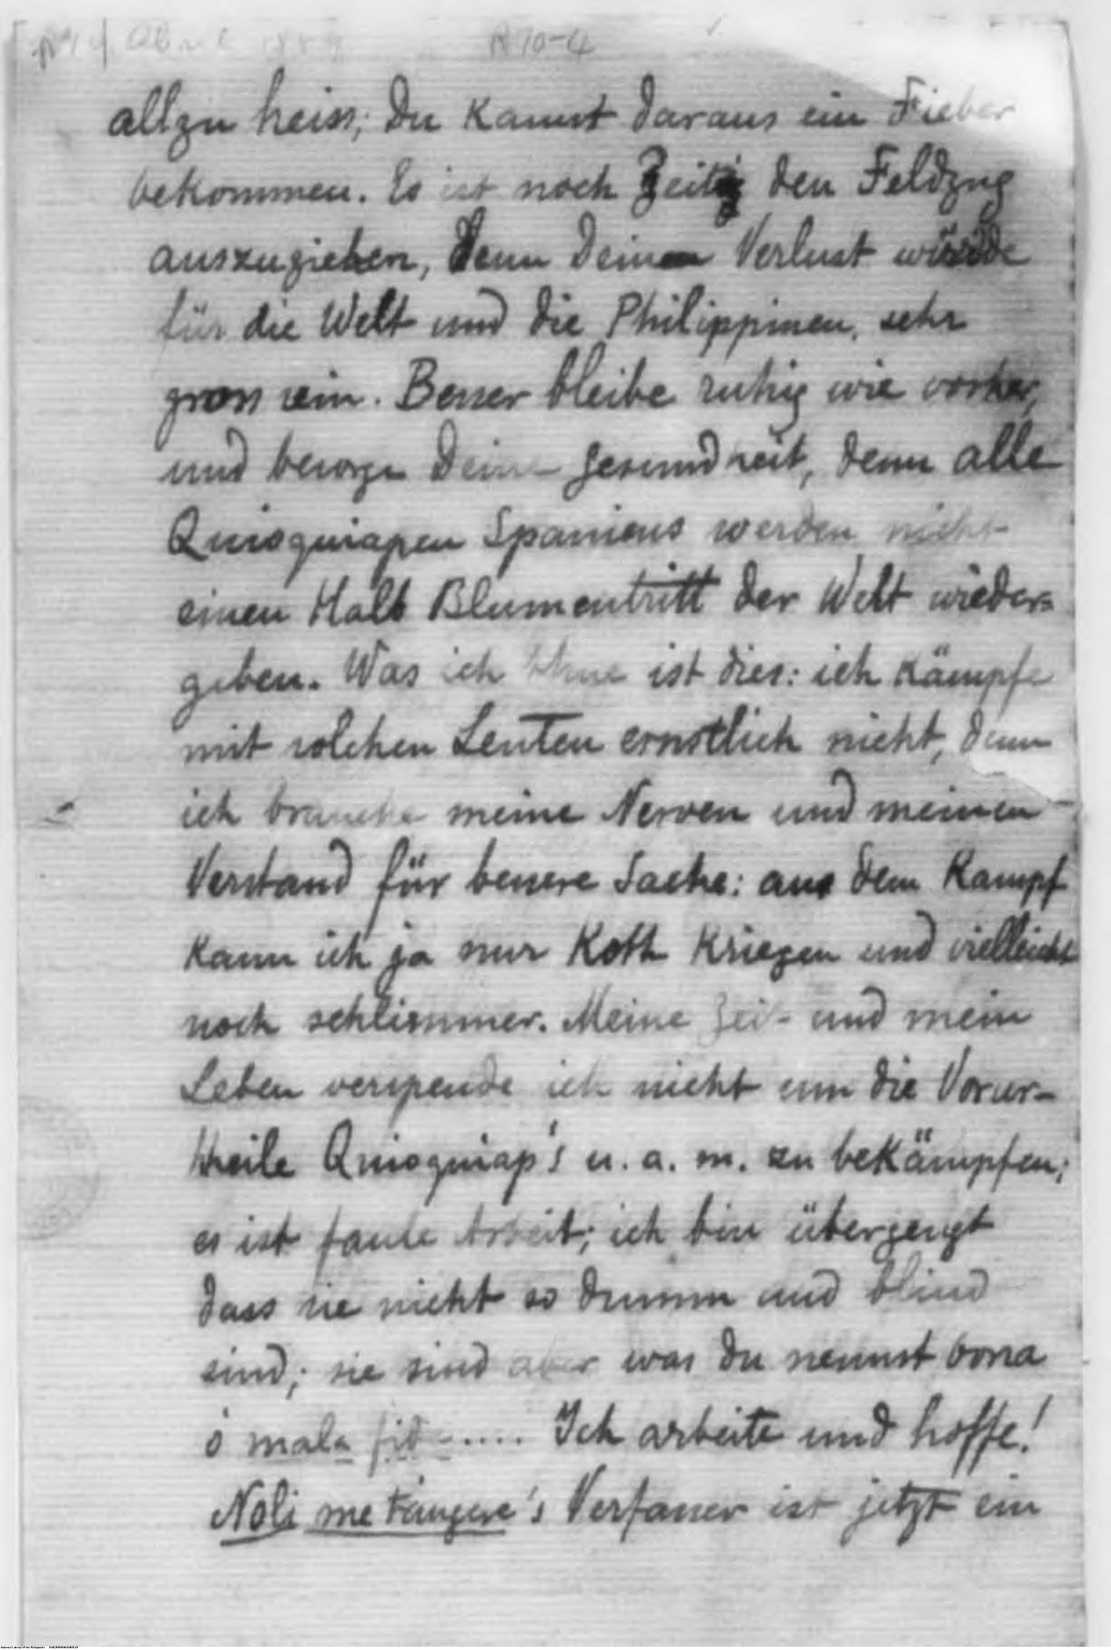 R 10-4
allzu heiss; Du kannst daraus ein Fieber
bekommen. Es ist noch Zeit den Feldzug
auszuziehen, denn Deinen Verlust würde
für die Welt und die Philippinen sehr
gross sein. Besser bleibe ruhig wie vorher,
und besorge Deine Gesundheit, denn alle
Quioquiapen Spaniens werden nicht
einen Halb Blumentritt der Welt wieder=
geben. Was ich thue ist dies: ich kämpfe
mit solchen Leuten ernstlich nicht, denn
ich brauche meine Nerven und meinen
Verstand für bessere Sache: aus dem Kampf
kann ich ja nur Koth kriegen und vielleicht
noch schlimmer. Meine Zeit und mein
Leben verspende ich nicht um die Vorur-
theile Quioquiap's u. a. m. zu bekämpfen;
es ist faule Arbeit; ich bin überzeugt
dass sie nicht so dumm und blind
sind; sie sind aber was du nennst bona
ó mala fide..... Ich arbeite und hoffe!
Noli me tángere's Verfasser ist jetzt ein